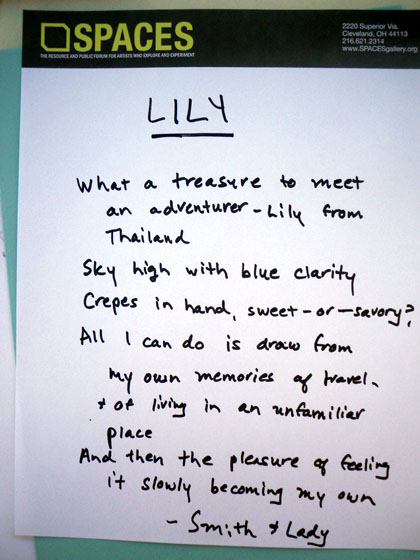 SPACES
THE RESOURCE AND PUBLIC FORUM FOR ARTISTS WHO EXPLORE AND EXPERIMENT
2220 Superior Via.
Cleveland, OH 44113
216.621.2314
www.SPACESgallery.org
LILY
What a treasure to meet
an adventurer - Lily from
Thailand
Sky high with blue clarity
Crepes in hand, sweet-or-savory?
All I can do is draw from
my own memories of travel,
+ of living in an unfamiliar
place
And then the pleasure of feeling
it slowly becoming my own
- Smith + Lady